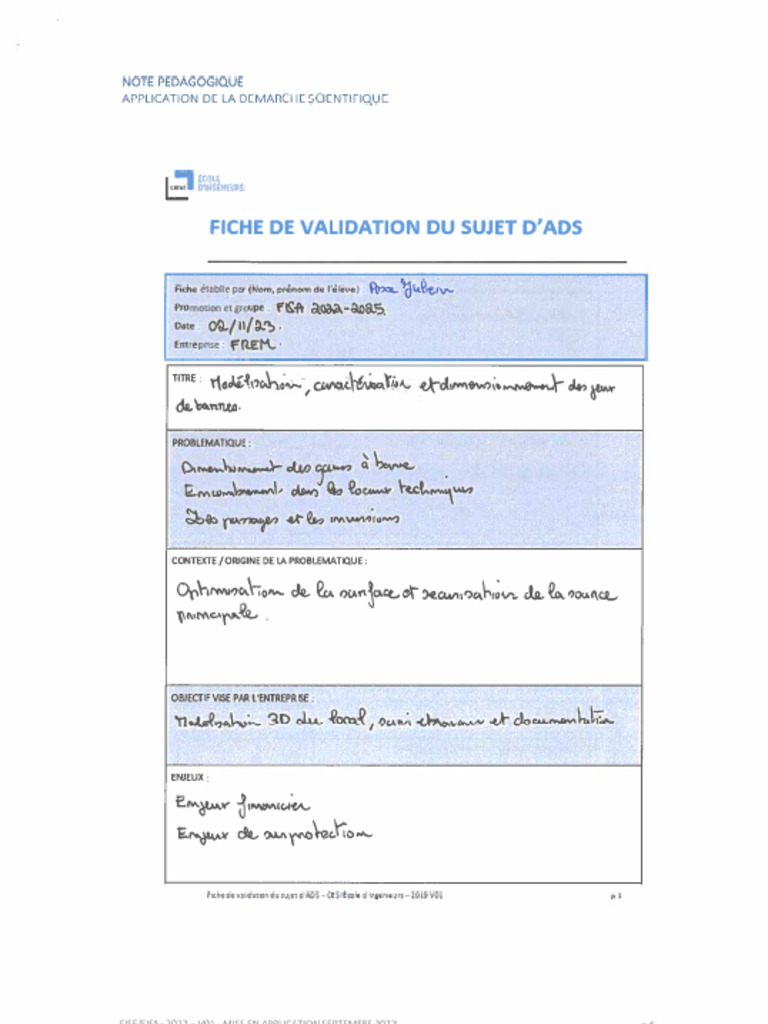 NOTE PEDAGOGIQUE
APPLICATION DE LA DEMARCHE SCIENTIFIQUE
cesi ÉCOLE
D'INGÉNIEURS
FICHE DE VALIDATION DU SUJET D'ADS
Fiche établie par (Nom, prénom de l'élève)
Promotion et groupe : FISA 2022-2025
Date : 02/11/23.
Entreprise : FREM.
TITRE : Modélisation, caractérisation et dimensionnement des jeux
de barres.
PROBLEMATIQUE :
des gaines à barre
Encombrements dans les locaux techniques
Les passages et les
CONTEXTE / ORIGINE DE LA PROBLEMATIQUE :
Optimisation de la surface et sécurisation de la source
principale.
OBJECTIF VISE PAR L'ENTREPRISE :
Modélisation 3D du local, suivi et documentation
ENJEUX :
Enjeux financier
Enjeux de surprotection
Fiche de validation du sujet d'ADS – CESI École d'Ingénieurs – 2019 V01
p 1
2022 - V01 - MISE EN APPLICATION SEPTEMBRE 2022